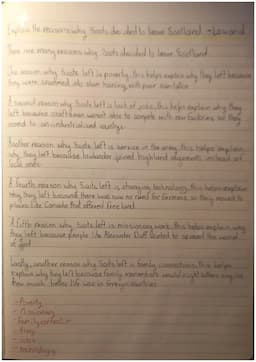 Explain the reasons why Scots decided to leave Scotland. - Lowland
There are many reasons why Scots decided to leave Scotland.
One reason why Scots left is poverty, this helps explain why they left because
they were crammed into slum housing with poor sanitation.
A second reason why Scots left is lack of jobs, this helps explain why they
left because craftsmen weren't able to compete with new factories, so they
moved to un-industrialised countrys.
Another reason why Scots left is service in the army, this helps explain
why they left because lowlander joined highland regiments instead of
local ones.
A fourth reason why Scots left is changing technology, this helps explain
why they left because there was now no need for farmers, so they moved to
places like Canada that offered free land.
A fifth reason why Scots left is missionary work, this helps explain why
they left because people like Alexander Duff wanted to spread the word
of god.
Lastly, another reason why Scots left is family connections, this helps
explain why they left because family members would write letters saying
how much better life was in foreign countries.
- Poverty
- Missionary
- family connection
- Army